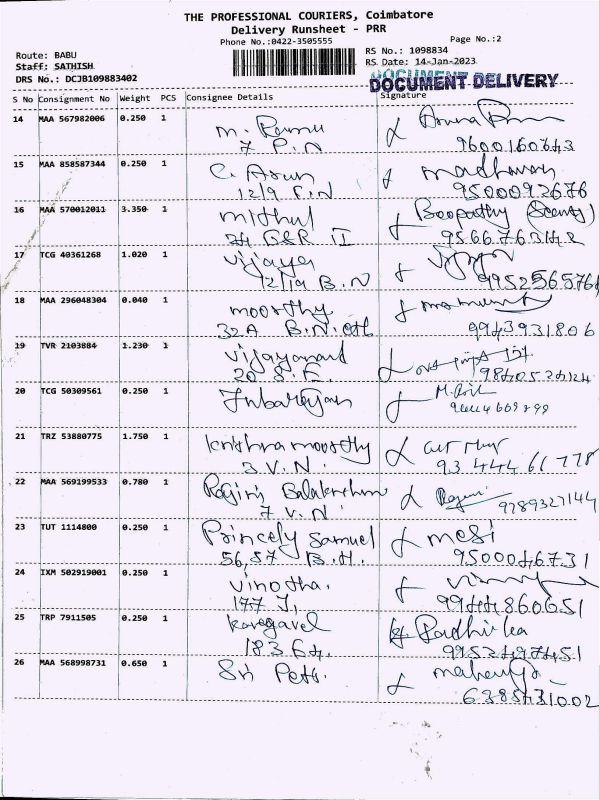 THE PROFESSIONAL COURIERS, Coimbatore
Delivery Runsheet - PRR
Phone No.:0422-3505555
Page No.:2
Route: BABU
RS No.: 1098834
Staff: SATHISH
RS Date: 14-Jan-2023
DRS No.: DCJB109883402
DOCUMENT DELIVERY
S No Consignment No Weight PCS Consignee Details Signature
14 MAA 567982006 0.250 1 M. Ramu
7 P.N 9600160743
15 MAA 858587344 0.250 1 C. Arun madhavan
12/9 F.N 9500092676
16 MAA 570012011 3.350 1 Mithul Boopathy
24 G&R II 9566763142
17 TCG 40361268 1.020 1 Vijaya
12/19 B.N 995256576
18 MAA 296048304 0.040 1 moorthy
32A B.N. 9943931806
19 TVR 2103884 1.230 1 Vijayanand
20 S.E. 9840524124
20 TCG 50309561 0.250 1
21 TRZ 53880775 1.750 1 Krishnamoorthy
3 V.N. 93 444 61 778
22 MAA 569199533 0.780 1 Balakrishnan
7 V.N 9789327144
23 TUT 1114800 0.250 1 Princely Samuel mesi
56,57 B.H. 9500046731
24 IXM 502919001 0.250 1 Vinotha.
177 J, 9944860651
25 TRP 7911505 0.250 1 Radhika
183 G4. 9952497451
26 MAA 568998731 0.650 1 Sri Pets.
6385431002